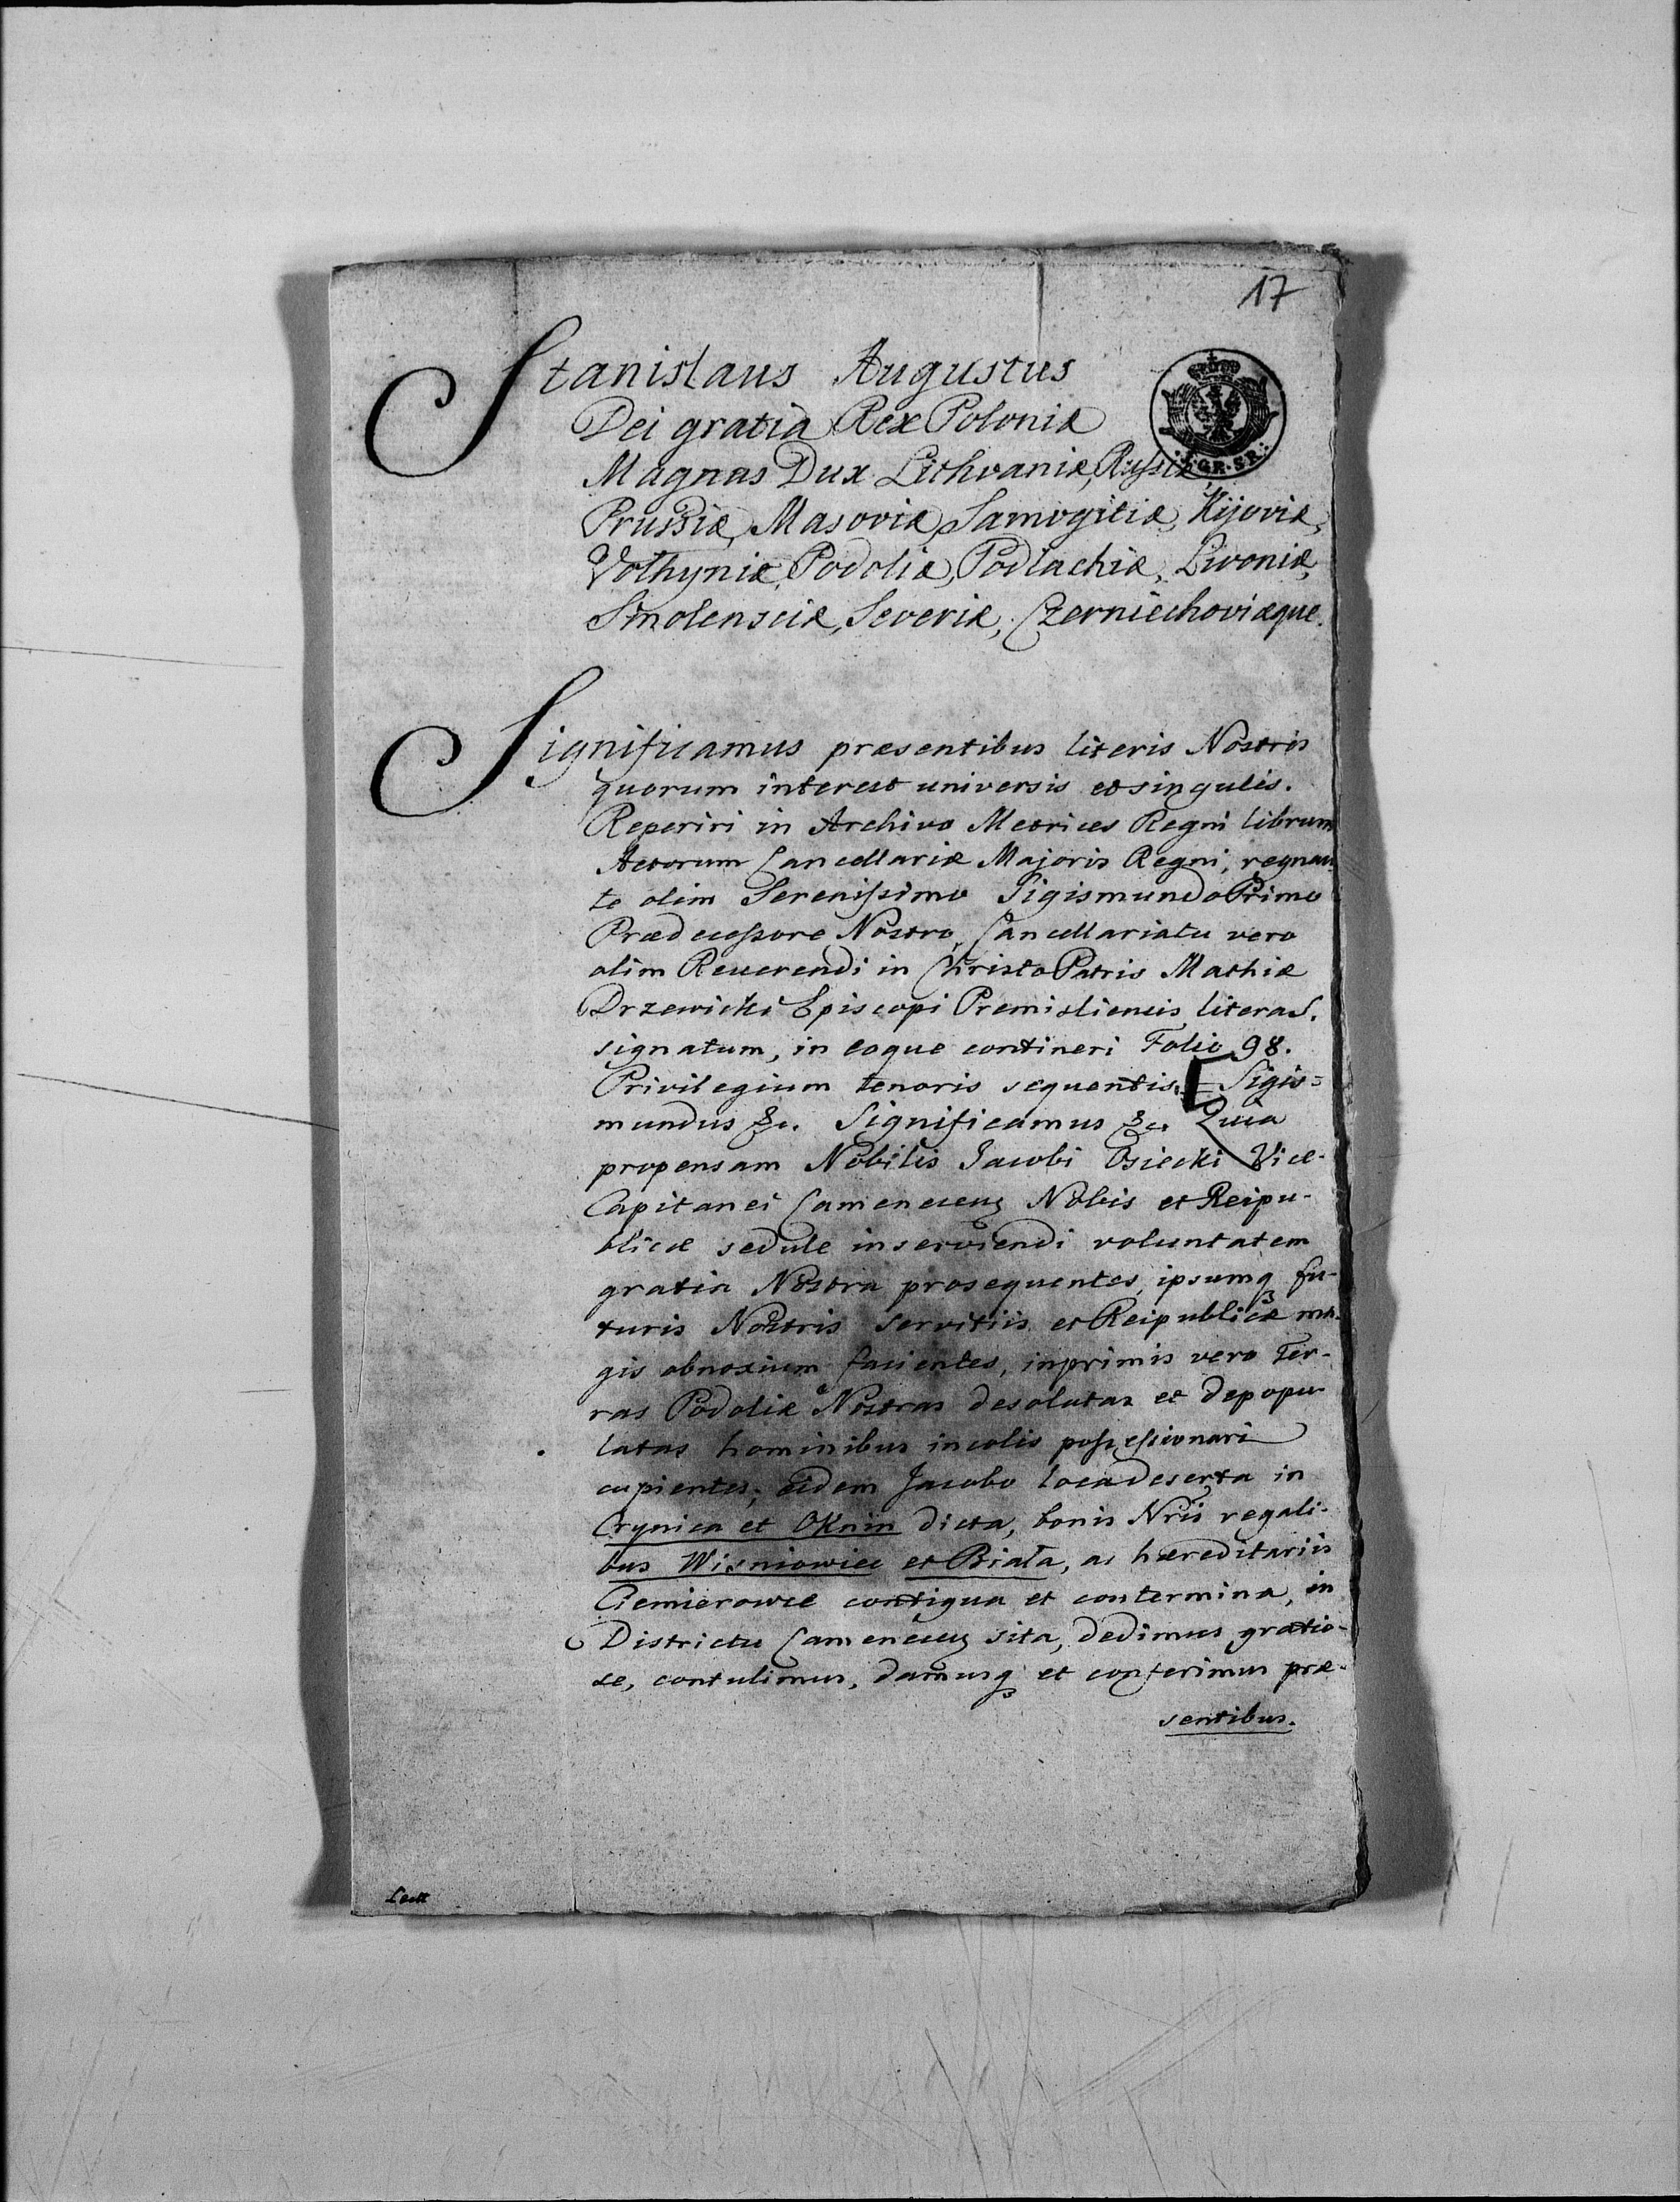 17
Stanislaus Augustus
Dei gratia Rex Poloniæ
Magnus Dux Lithvaniæ, Russiæ,
Prussiæ, Masoviæ, Samogitiæ, Kijoviæ,
Volhyniæ, Podoliæ, Podlachiæ, Livoniæ,
Smolensciæ, Severiæ, Czerniechoviæque.
Significamus præsentibus literis Nostris
quorum interest universis et singulis.
Reperiri in Archivo Metrices Regni librum
Actorum Cancellariæ Majoris Regni, regnan-
te olim Serenissimo Sigismundo Primo
Prædecessore Nostro, Cancellariatu vero
olim Reuerendi in Christo Patris Mathiæ
Drzewicki Episcopi Premisliensis, litera S.
signatum, in eoque contineri Folio 98.
Privilegium tenoris sequentis. [= Sigis=
mundus &c. Significamus &c. Quia
propensam Nobilis Jacobi Osiecki Vice-
Capitanei Camenecens Nobis et Reipu-
blicæ sedule inserviendi voluntatem
gratia Nostra prosequentes, ipsumq fu-
turis Nostris servitiis et Reipublicæ ma-
gis obnoxium facientes, inprimis vero Ter-
ras Podoliæ Nostras desolatas et depopu-
latas hominibus incolis possessionari
cupientes, eidem Jacobo loca deserta in
Crynica et Oknin dicta, bonis Nris regali-
bus Wisniowiec et Biała, ac hæreditariis
Ciemierowce contigua et contermina, in
Districtu Camenecens sita, dedimus gratio-
se, contulimus, damusq et conferimus præ-
sentibus.